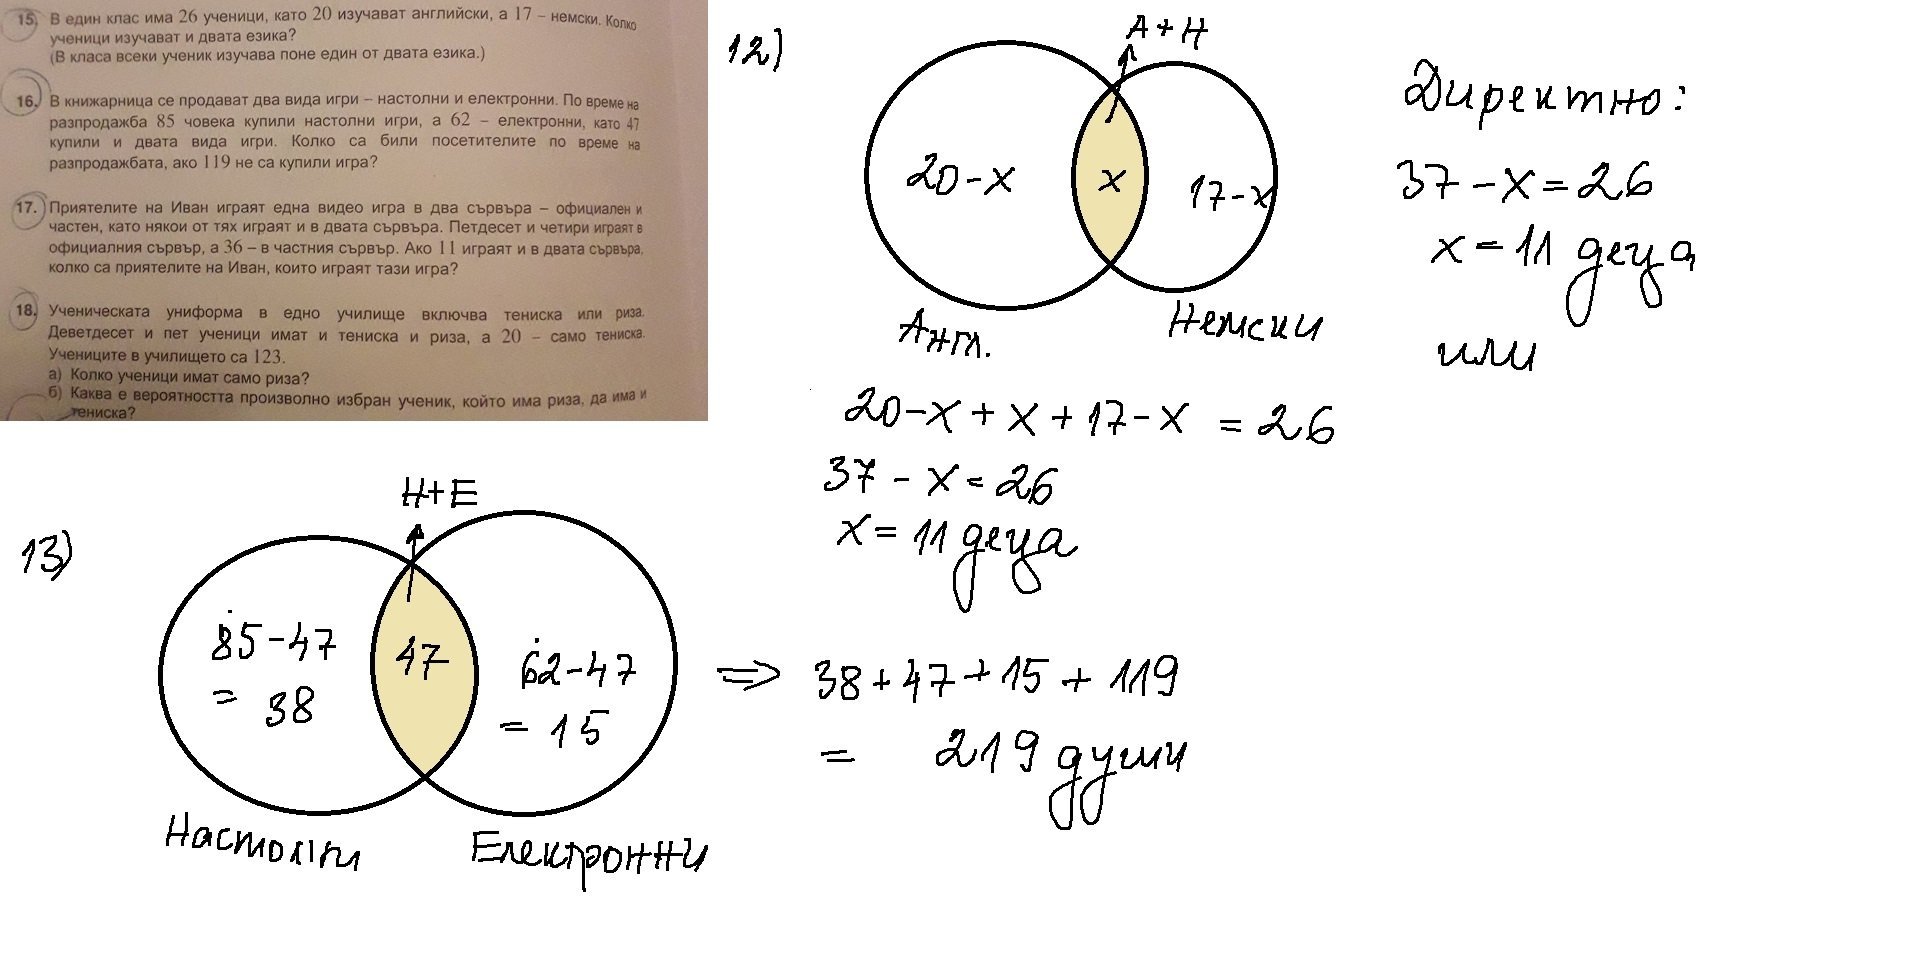 15. В един клас има 26 ученици, като 20 изучават английски, а 17 – немски. Колко
ученици изучават и двата езика?
(В класа всеки ученик изучава поне един от двата езика.)
16. В книжарница се продават два вида игри – настолни и електронни. По време на
разпродажба 85 човека купили настолни игри, а 62 – електронни, като 47
купили и двата вида игри. Колко са били посетителите по време на
разпродажбата, ако 119 не са купили игра?
17. Приятелите на Иван играят една видео игра в два сървъра – официален и
частен, като някои от тях играят и в двата сървъра. Петдесет и четири играят в
официалния сървър, а 36 – в частния сървър. Ако 11 играят и в двата сървъра,
колко са приятелите на Иван, които играят тази игра?
18. Ученическата униформа в едно училище включва тениска или риза.
Деветдесет и пет ученици имат и тениска и риза, а 20 – само тениска.
Учениците в училището са 123.
а) Колко ученици имат само риза?
б) Каква е вероятността произволно избран ученик, който има риза, да има и
тениска?
12)
А+Н
20-x
x
17-x
Англ.
Немски
Директно:
37-x=26
x=11 деца
или
20-x+x+17-x = 26
37-x=26
x=11 деца
13)
Н+Е
85-47
= 38
47
62-47
= 15
Настолни
Електронни
=> 38+47+15+119
= 219 души